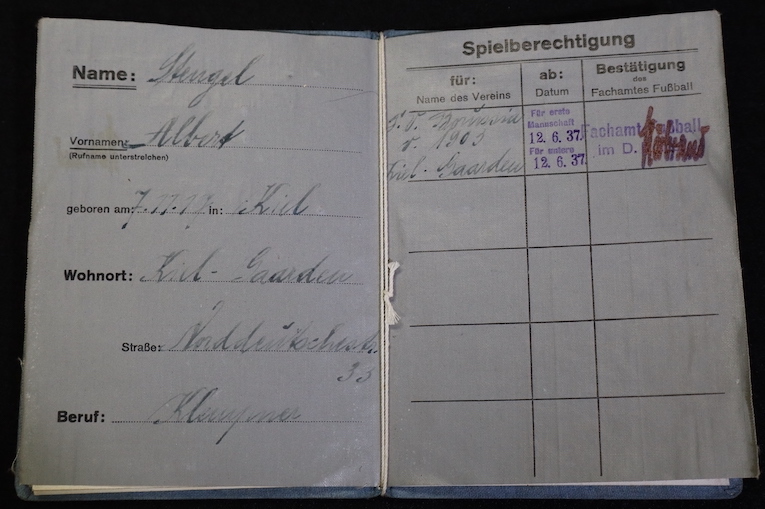 Name: Stengel
Vornamen: Albert
(Rufname unterstreichen)
geboren am: 7.11.17. in: Kiel
Wohnort: Kiel-Gaarden
Straße: Norddeutschestr.
33
Beruf: Klempner
Spielberechtigung
für:
Name des Vereins
ab:
Datum
Bestätigung
des
Fachamtes Fußball
S.V. Borussia
v. 1905
Kiel-Gaarden
Für erste
Mannschaft
12.6.37.
Für untere
12.6.37.
Fachamt Fußball
im D.